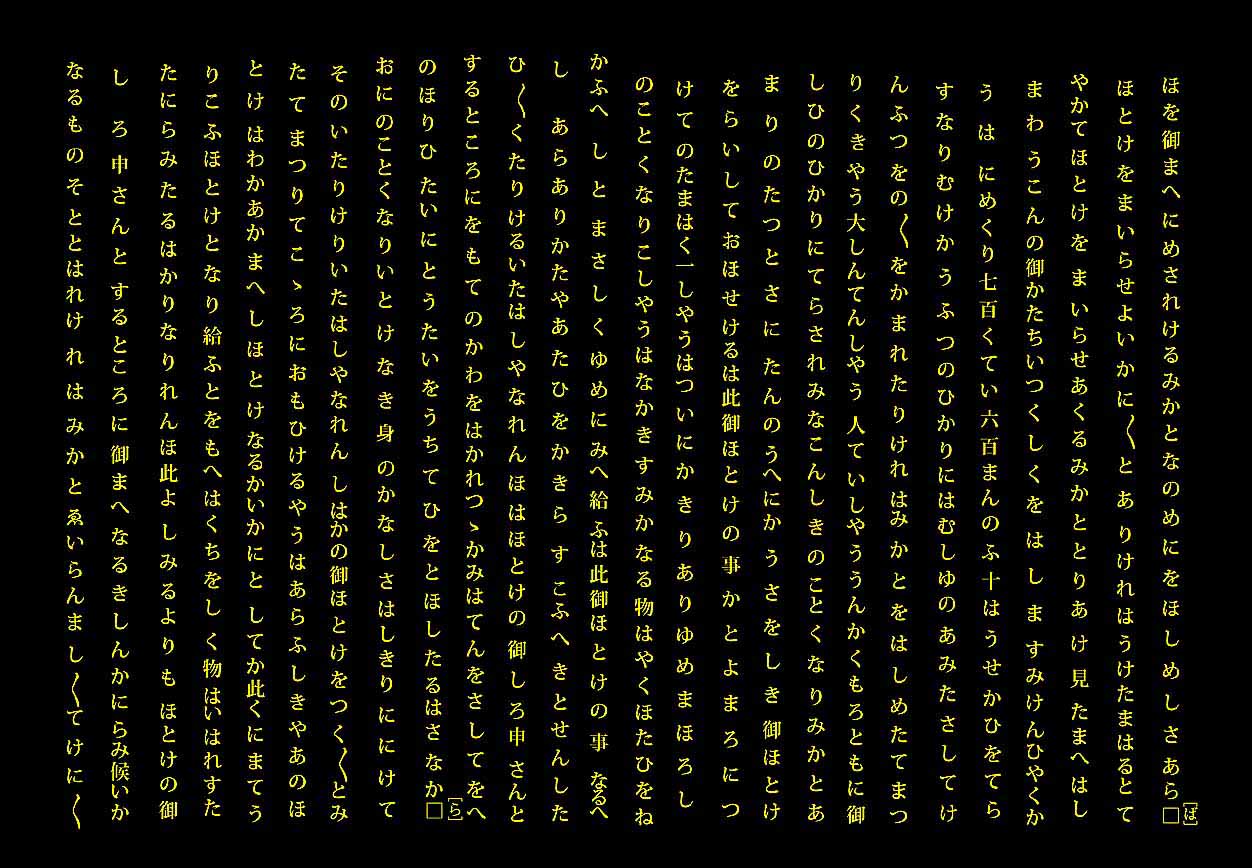 ほを御まへにめされけるみかとなのめにをほしめしさあら□[ば]
ほとけをまいらせよいかに〱とありけれはうけたまはるとて
やかてほとけをまいらせあくるみかととりあけ見たまへはし
まわうこんの御かたちいつくしくをはしますみけんひやくか
うはにめくり七百くてい六百まんのふ十はうせかひをてら
すなりむけかうふつのひかりにはむしゆのあみたさしてけ
んふつをの〱をかまれたりけれはみかとをはしめたてまつ
りくきやう大しんてんしやう人ていしやううんかくもろともに御
しひのひかりにてらされみなこんしきのことくなりみかとあ
まりのたつとさにたんのうへにかうさをしき御ほとけ
をらいしておほせけるは此御ほとけの事かとよまろにつ
けてのたまはく一しやうはついにかきりありゆめまほろし
のことくなりこしやうはなかきすみかなる物はやくほたひをね
かふへしとまさしくゆめにみへ給ふは此御ほとけの事なるへ
しあらありかたやあたひをかきらすこふへきとせんした
ひ〱くたりけるいたはしやなれんほはほとけの御しろ申さんと
するところにをもてのかわをはかれつゝかみはてんをさしてをへ
のほりひたいにとうたいをうちてひをとほしたるはさなか□[ら]
おにのことくなりいとけなき身のかなしさはしきりににけて
そのいたりけりいたはしやなれんしはかの御ほとけをつく〱とみ
たてまつりてこゝろにおもひけるやうはあらふしきやあのほ
とけはわかあかまへしほとけなるかいかにとしてか此くにまてう
りこふほとけとなり給ふとをもへはくちをしく物はいはれすた
たにらみたるはかりなりれんほ此よしみるよりもほとけの御
しろ申さんとするところに御まへなるきしんかにらみ候いか
なるものそととはれけれはみかとゑいらんまし〱てけに〱